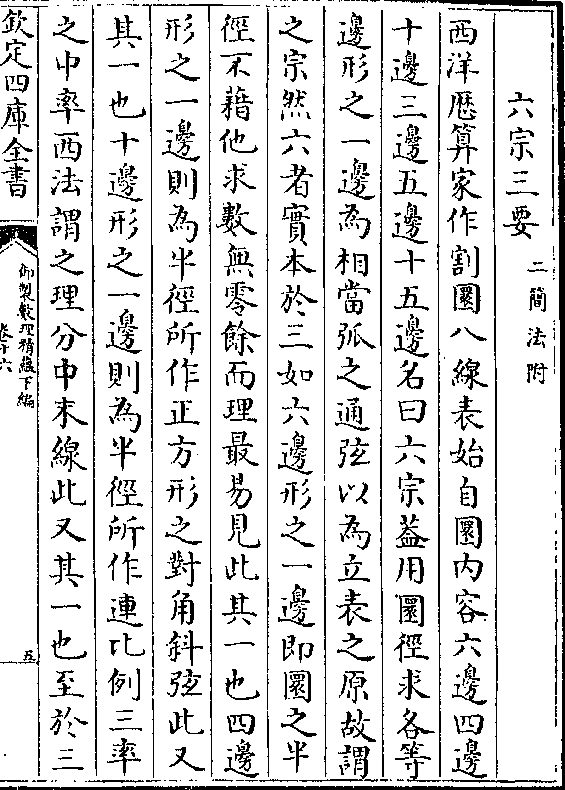 六宗三要
二簡法附
西洋厯算家作割圜八線表始自圜内容六邊四邊
十邊三邊五邊十五邊名曰六宗葢用圜徑求各等
邊形之一邊為相當弧之通弦以為立表之原故謂
之宗然六者實本於三如六邊形之一邊即圜之半
徑不藉他求數無零餘而理最易見此其一也四邊
形之一邊則為半徑所作正方形之對角斜弦此又
其一也十邊形之一邊則為半徑所作連比例三率
之中率西法謂之理分中末線此又其一也至於三
欽定四庫全書
御製數理精蘊下編
卷十六
五